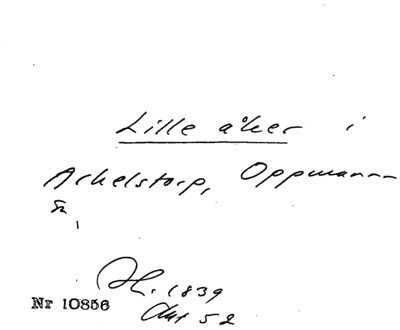 Lille åker i
Arkelstorp, Oppmanna
sn,
1839
Akt 52
Nr 10856